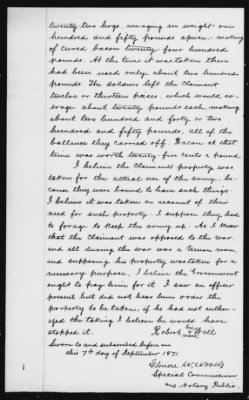 twenty two hogs. averaging in weight one
hundred and fifty pounds apiece. making
of cured bacon twenty four hundred
pounds. At the time it was taken there
had been used only about two hundred
pounds. The soldiers left the claimant
twelve or thirteen pieces which would av-
erage about twenty pounds each making
about two hundred and forty or two
hundred and fifty pounds, all of the
ballance they carried off. Bacon at that
time was worth twenty five cents a pound.
I believe the Claimants property was
taken for the actual use of the army. be-
cause they were bound to have such things.
I believe it was taken on account of their
need for such property. I suppose they had
to forage to keep the army up. As I know
that the claimant was opposed to the war.
and all during the war was a Union man,
and supposing his property was taken for a
necessary purpose, I believe the Government
ought to pay him for it. I saw an officer
present but did not hear him order the
property to be taken. if he had not author-
ized the taking I believe he would have
stopped it. Robert his x mark Hall
Sworn to and subscribed before me
this 7th day of September 1871
W. Woods
Special Commissioner
and Notary Public